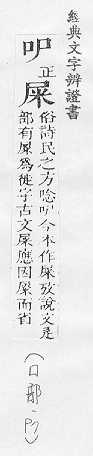 經典文字辨證書
㕧正
屎俗詩民之方唸㕧今本作屎攷說文辵
部有屎爲徙字古文屎應因屎而省
(口部